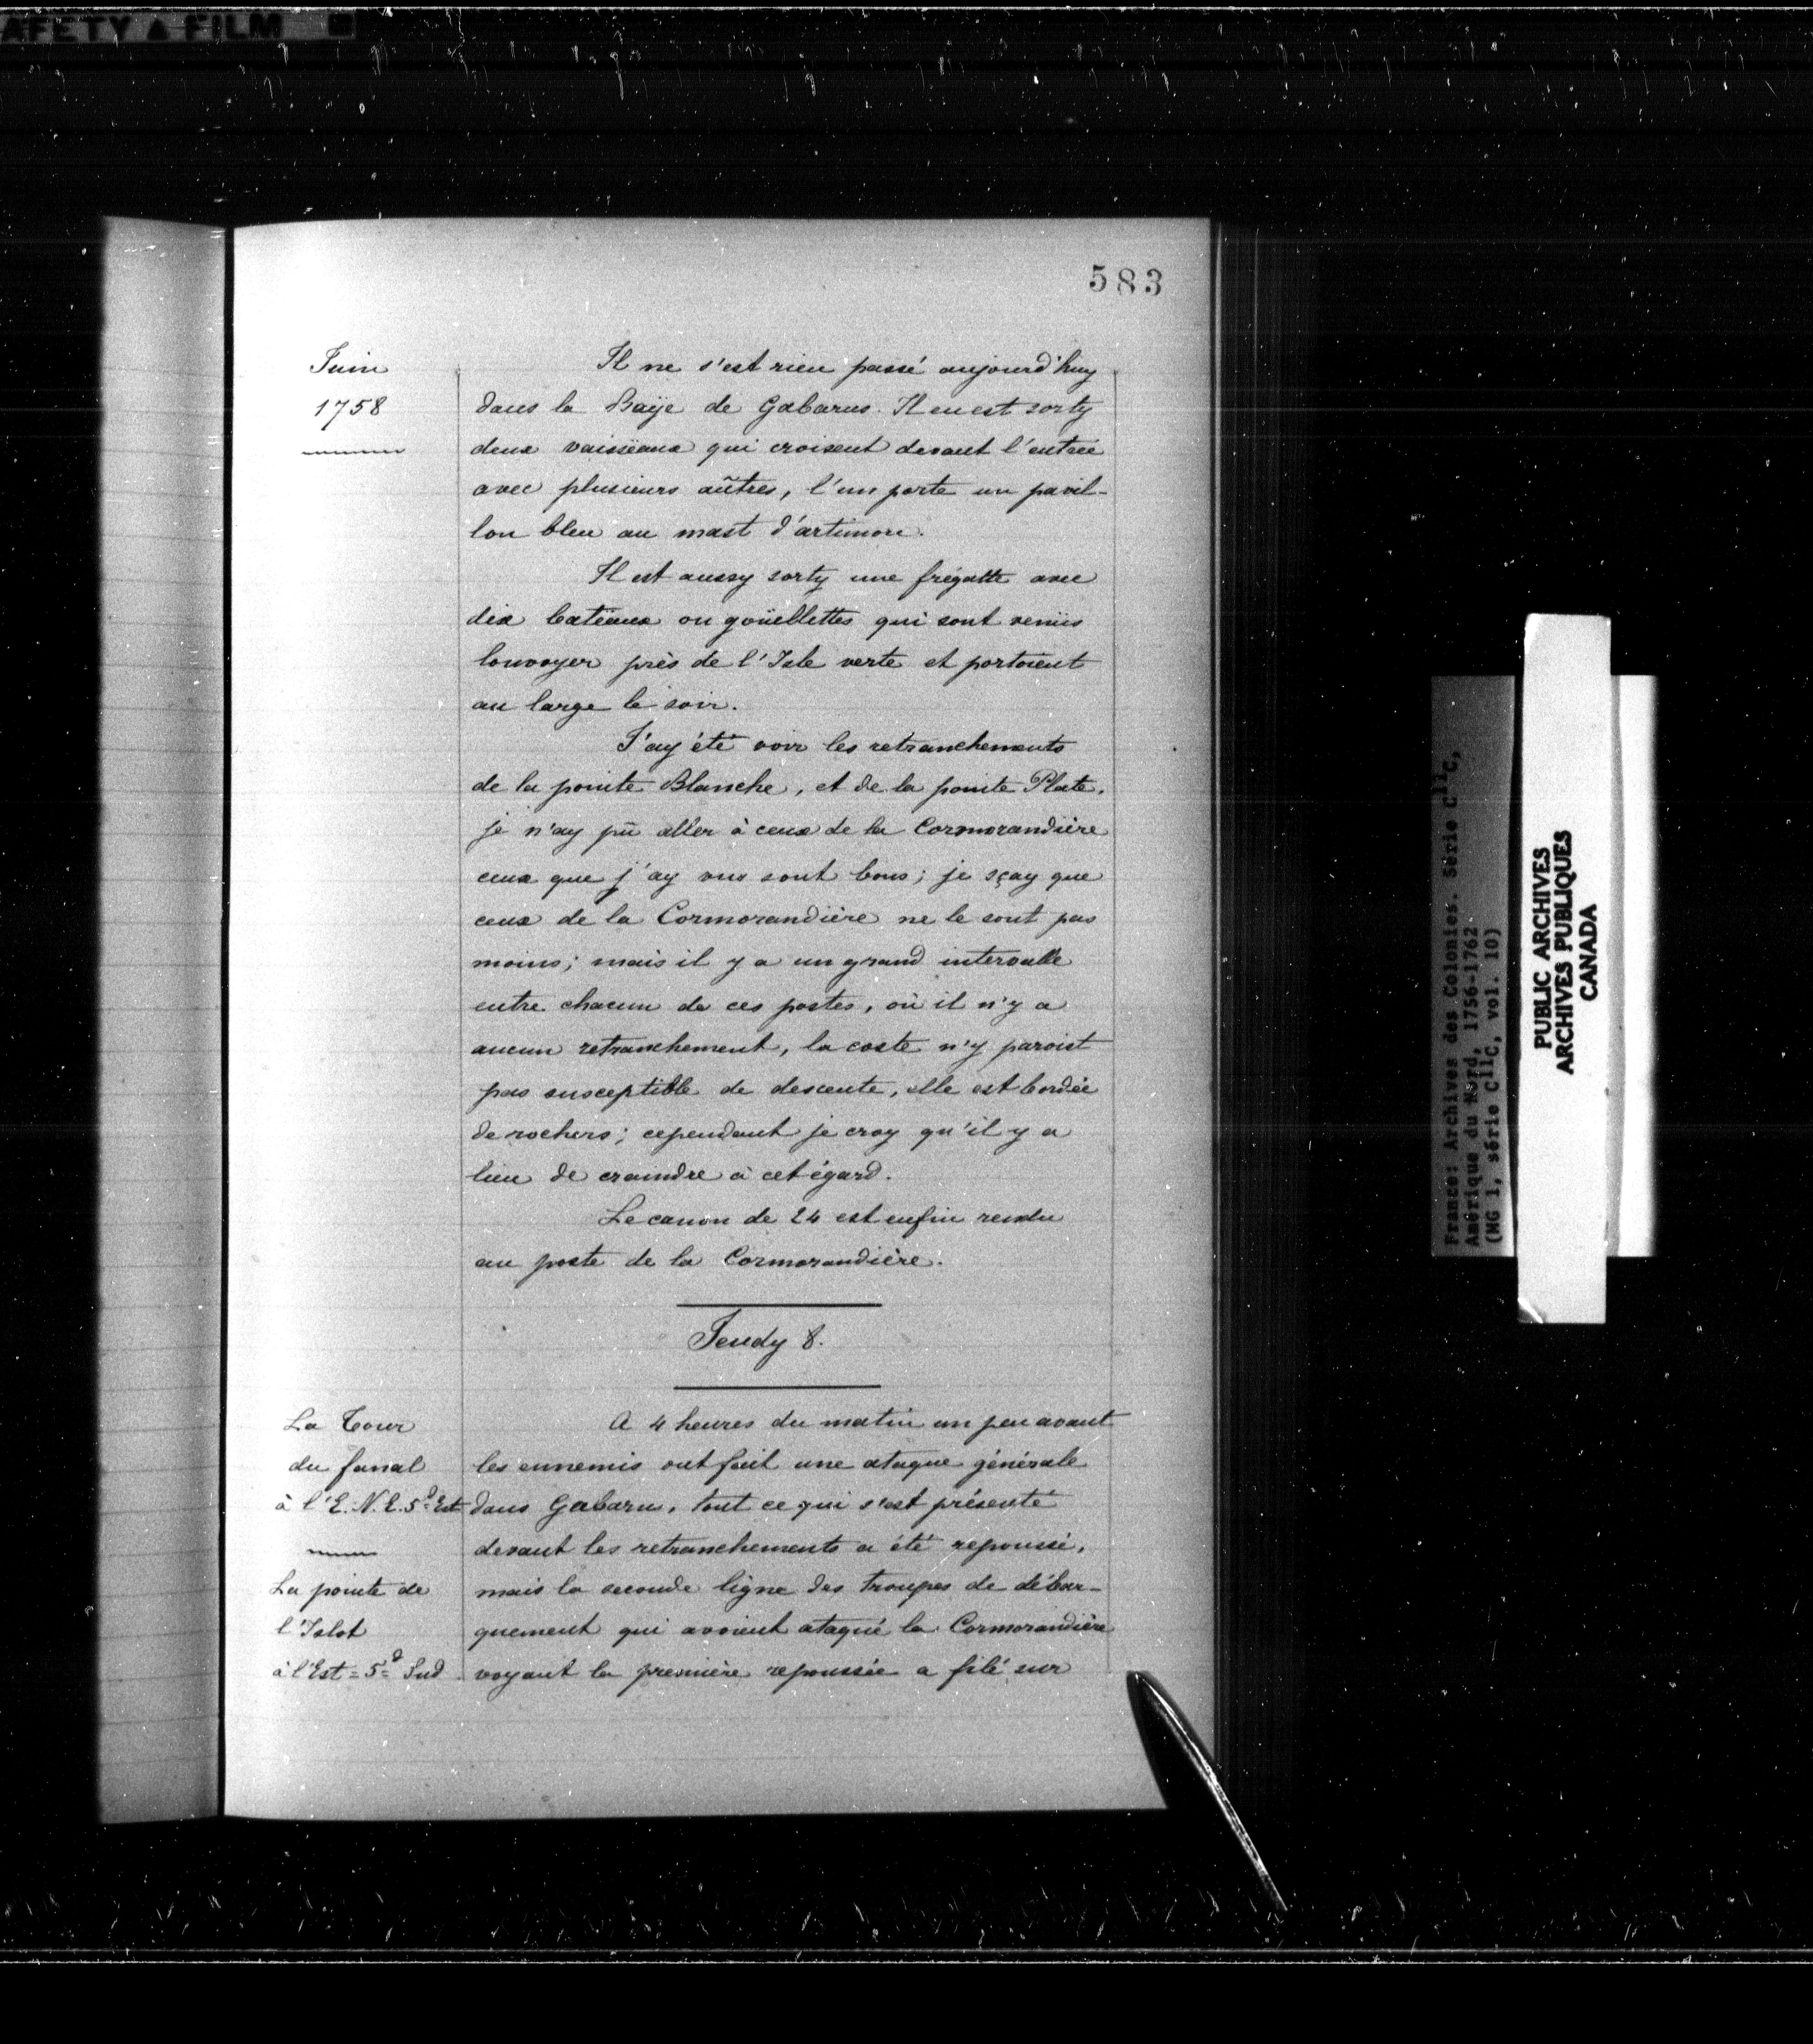 AFETY ▲ FILM
583
Juin
1758
Il ne s'est rien passé aujourd'huy
dans la Baÿe de Gabarus. Il en est sorty
deux vaisseaux qui croisent devant l'entrée
avec plusieurs aûtres, l'un porte un pavil-
lon bleu au mast d'artimon.
Il est aussy sorty une frégatte avec
dix bateaux ou goüellettes qui sont venües
louvoyer près de l'Isle verte et portoient
au large le soir.
J'ay été voir les retranchements
de la pointe Blanche, et de la pointe Plate,
je n'ay pû aller à ceux de la Cormorandière
ceux que j'ay vus sont bons; je sçay que
ceux de la Cormorandière ne le sont pas
moins; mais il y a un grand intervalle
entre chacun de ces postes, où il n'y a
aucun retranchement, la coste n'y paroist
pas susceptible de descente, elle est bordée
de rochers; cependant je croy qu'il y a
lieu de craindre à cet égard.
Le canon de 24 est enfin rendu
au poste de la Cormorandière.
Jeudy 8.
La Tour
du fanal
à l'E. N. E. 5d Est
La pointe de
l'Islot
à l'Est = 5d Sud
A 4 heures du matin un peu avant
les ennemis ont fait une ataque générale
dans Gabaru, tout ce qui s'est présenté
devant les retranchements a été repoussé,
mais la seconde ligne des troupes de débar-
quement qui avoient ataqué la Cormorandière
voyant la première repoussée a filé sur
France: Archives des Colonies. Série C11C,
Amérique du Nord, 1756-1762
(MG 1, série C11C, vol. 10)
PUBLIC ARCHIVES
ARCHIVES PUBLIQUES
CANADA